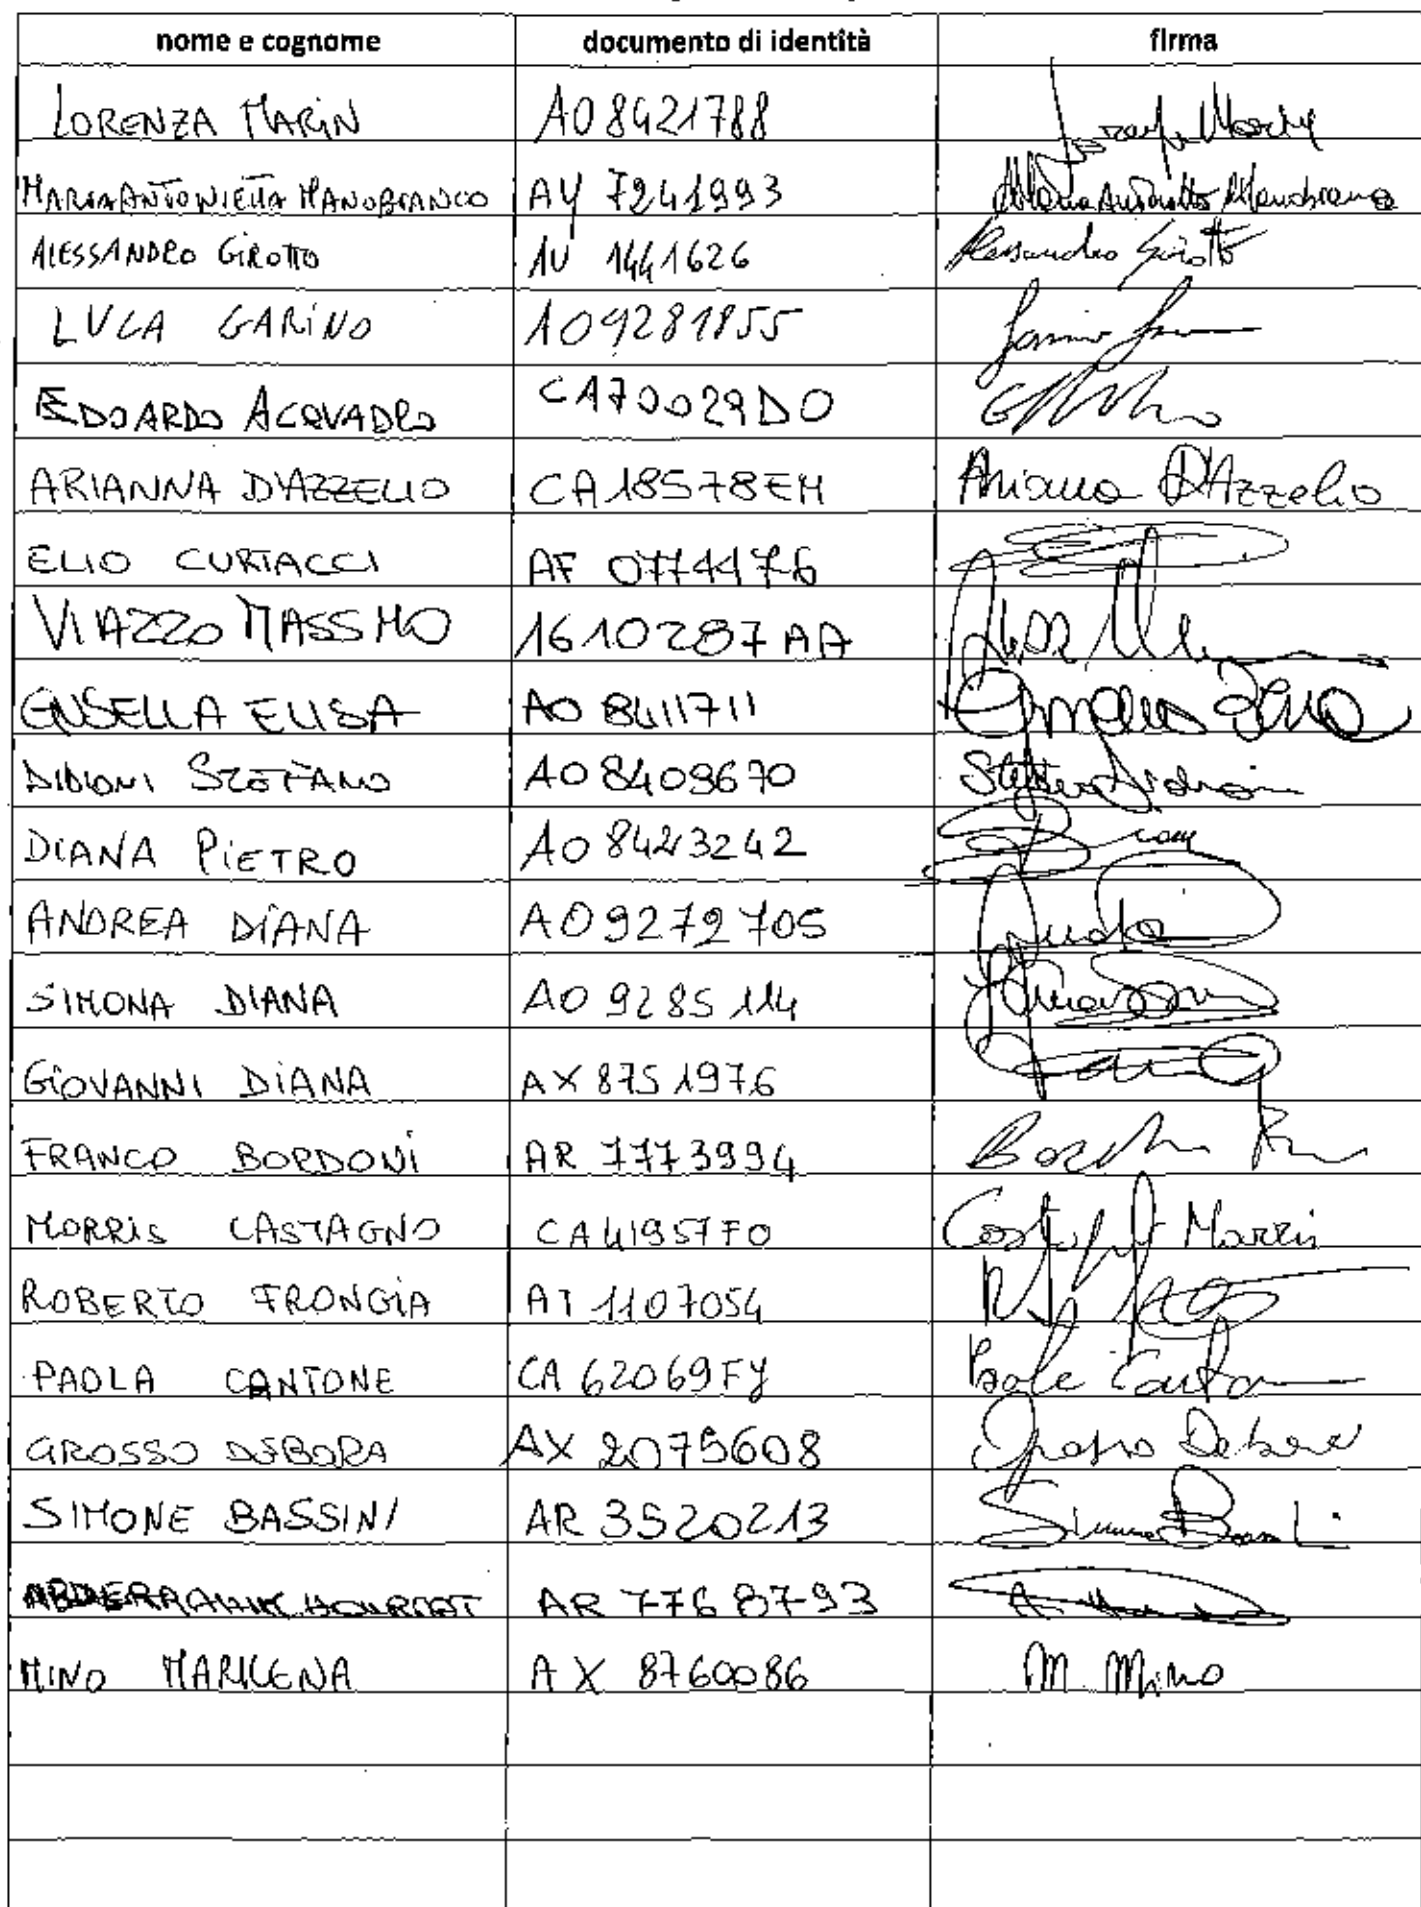 nome e cognome documento di identità firma
LORENZA MARIN AO 8421788
MARIA ANTONIETTA MANOBIANCO AY 7241993 Maria Antonietta Manobianco
ALESSANDRO GIROTTO AU 1441626 Alessandro Girotto
LUCA GARINO AO9281855
EDOARDO ACQUADRO CA70029DO
ARIANNA D'AZZELIO CA18578EH Arianna D'Azzelio
ELIO CURTACCI AF 0774476
VIAZZO MASSMO 1610287AA
ELISA AO 8411711
DIDIONI STEFANO AO 8409670 Stefano Didioni
DIANA PIETRO AO 8423242
ANDREA DIANA AO 9272705
SIMONA DIANA AO 9285114
GIOVANNI DIANA AX 8751976
FRANCO BORDONI AR 7773994
MORRIS CASTAGNO CA41957FO Morris
ROBERTO FRONGIA AT 1107054
PAOLA CANTONE CA 62069FY
GROSSO DEBORA AX 2075608 Grosso Debora
SIMONE BASSINI AR 3520213
AR 7768793
MINO MARILENA AX 8760086 M. Mino